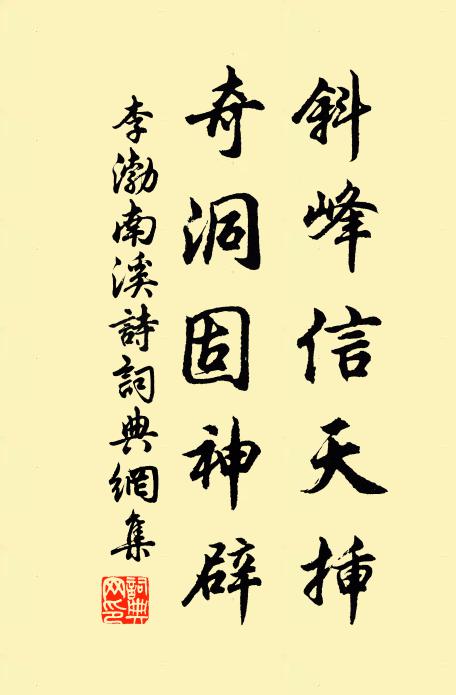 斜峰信天插
奇洞固神辟
李渤南溪詩詞典網集
詞典網印